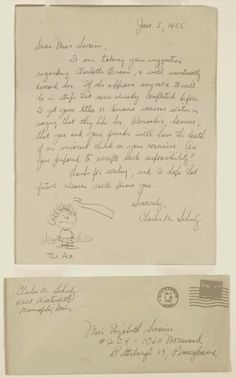 Jan. 5, 1955
Dear Miss Swaim,
I am taking your suggestion
regarding Charlotte Braun, & will eventually
discard her. If she appears anymore it will
be in strips that were already completed before
I got your letter or because someone writes in
saying that they like her. Remember, however,
that you and your friends will have the death
of an innocent child on your conscience. Are
you prepared to accept such responsibility?
Thanks for writing, and I hope that
future releases will please you.
Sincerely,
Charles M. Schulz
The Ax
Charles M. Schulz
Minn.
Miss Elizabeth Swaim
Pittsburgh 13, Pennsylvania